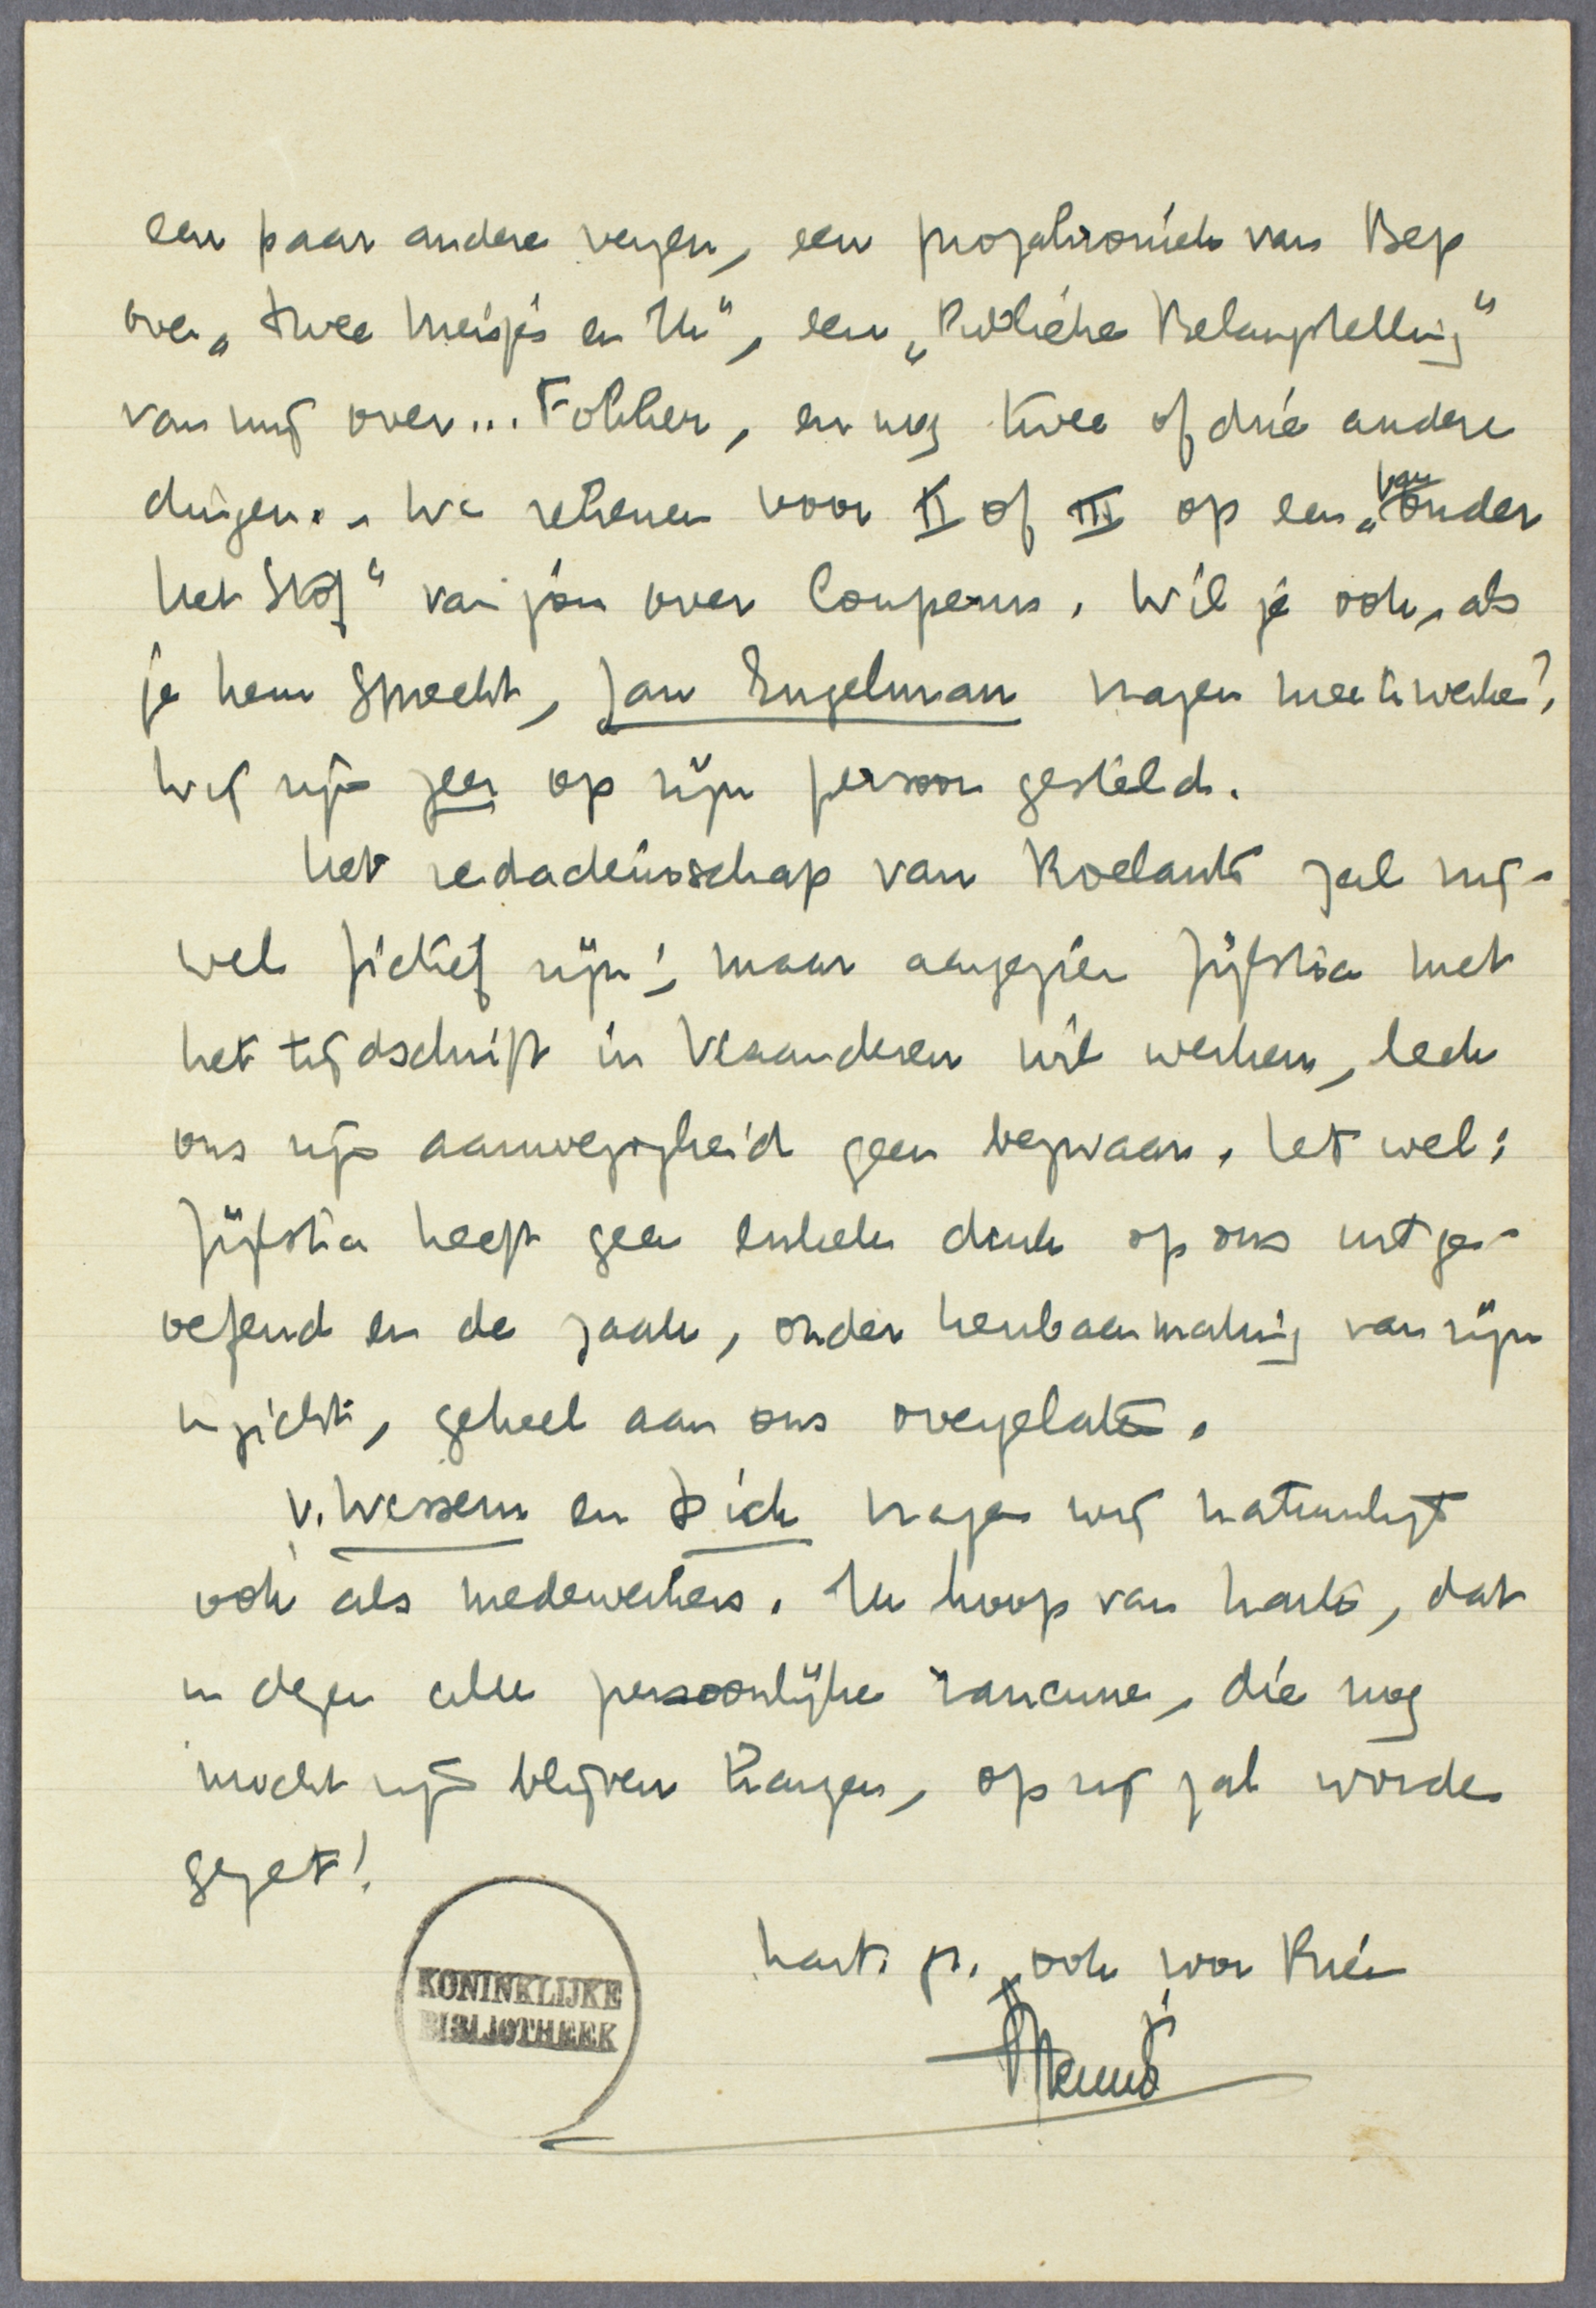 een paar andere verzen, een prozakroniek van Bep
over „Twee Meisjes en Ik“, een „Publieke Belangstelling“
van mij over... Fokker, en nog twee of drie andere
dingen. - We rekenen voor II of III op een „van onder
het Stof“ van jou over Couperus. Wil je ook, als
je hem spreekt, Jan Engelman vragen mee te werken?
Wij zijn zeer op zijn persoon gesteld.
Het redacteurschap van Roelants zal mij-
wel fictief zijn; maar aangezien Zijlstra met
het tijdschrift in Vlaanderen wil werken, leek
ons zijn aanwezigheid geen bezwaar. Let wel:
Zijlstra heeft geen enkele druk op ons uitge-
oefend en de zaak, onder kenbaarmaking van zijn
inzicht, geheel aan ons overgelaten.
v. Wessem en Dick vragen wij natuurlijk
ook als medewerkers. Ik hoop van harte, dat
in dezen alle persoonlijke rancune, die nog
mocht zijn blijven hangen, op zij zal worden
gezet!
hart. gr., ook voor Rien
je
Menno
KONINKLIJKE
BIBLIOTHEEK